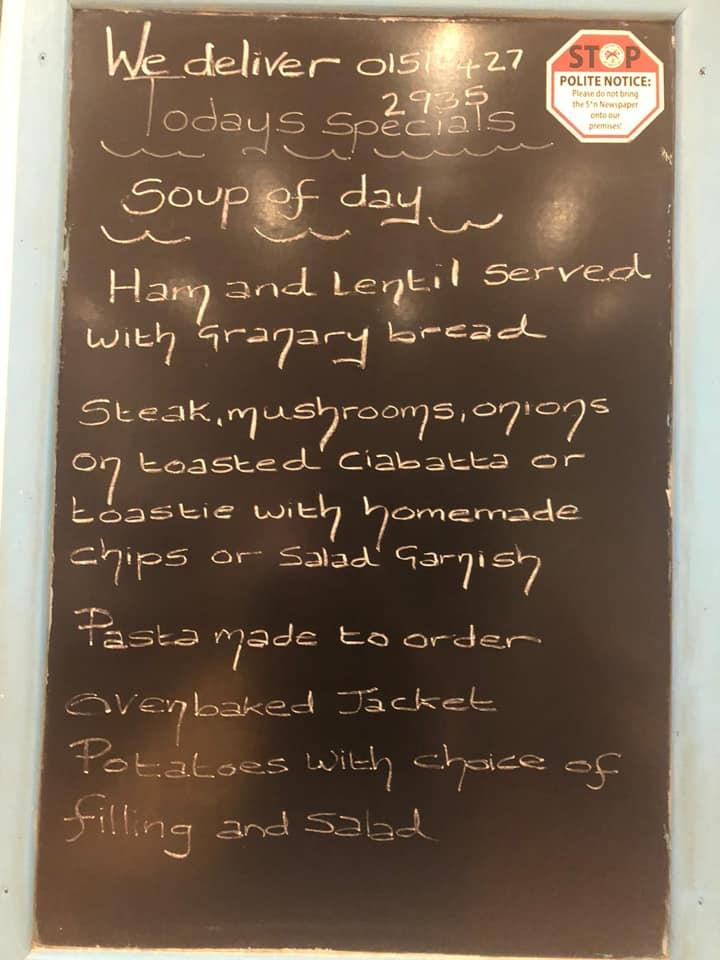 We deliver 0151 427
2935
Todays specials
Soup of day
Ham and Lentil served
with Granary bread
Steak, mushrooms, onions
on toasted Ciabatta or
toastie with homemade
chips or Salad Garnish
Pasta made to order
Ovenbaked Jacket
Potatoes with choice of
filling and salad
STOP
POLITE NOTICE:
Please do not bring
the S*n Newspaper
onto our
premises!